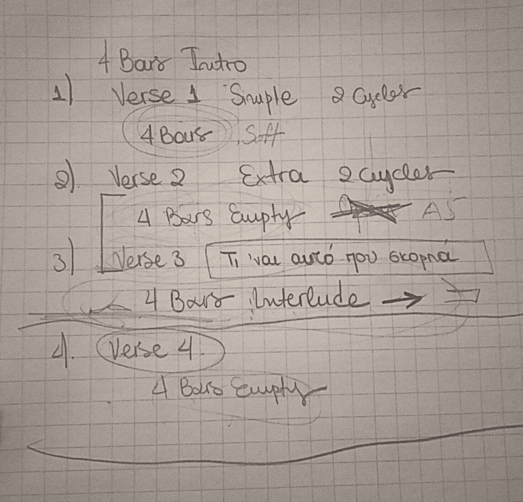 4 Bars Intro
1) Verse 1 Simple 2 Cycles
4 Bars Sff
2) Verse 2 Extra 2 cycles
4 Bars Empty AS
3) Verse 3 Τι 'ναι αυτό που σκορπά
4 Bars Interlude →
4. Verse 4.
4 Bars Empty